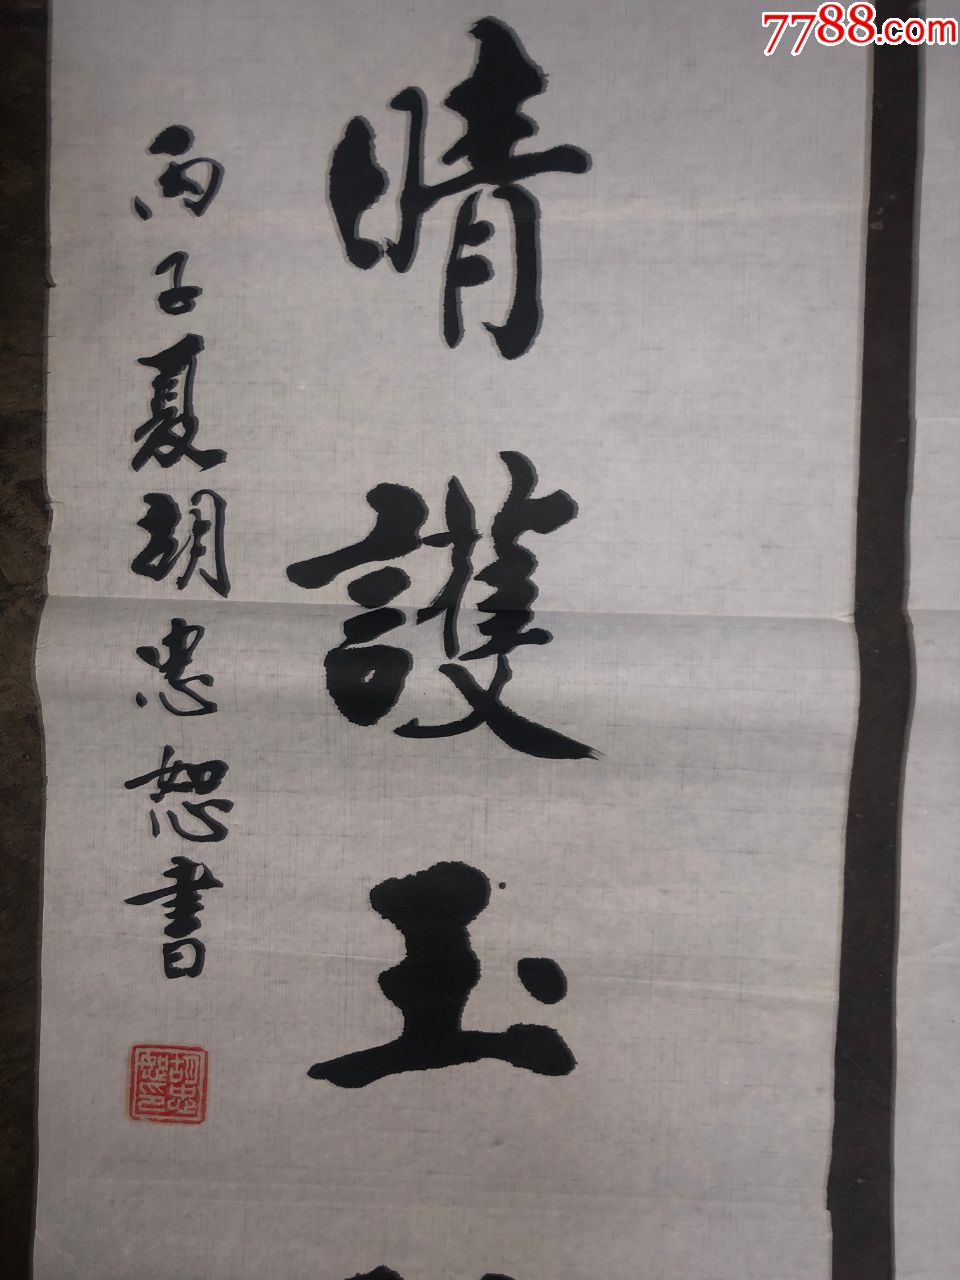 7788.com
晴護玉
丙子夏胡忠恕書